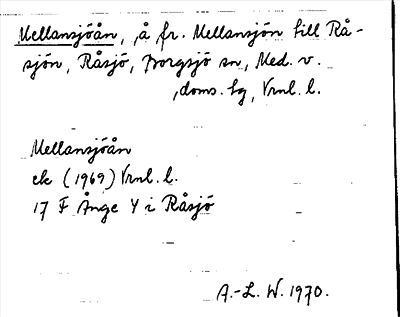 Mellansjöån, å fr. Mellansjön till Rå-
sjön, Råsjö, Borgsjö sn, Med. v.
doms. hg, Vrnl. l.
Mellansjöån
ek (1969) Vrnl. l.
17 F Ånge Y i Råsjö
A.-L. W. 1970.